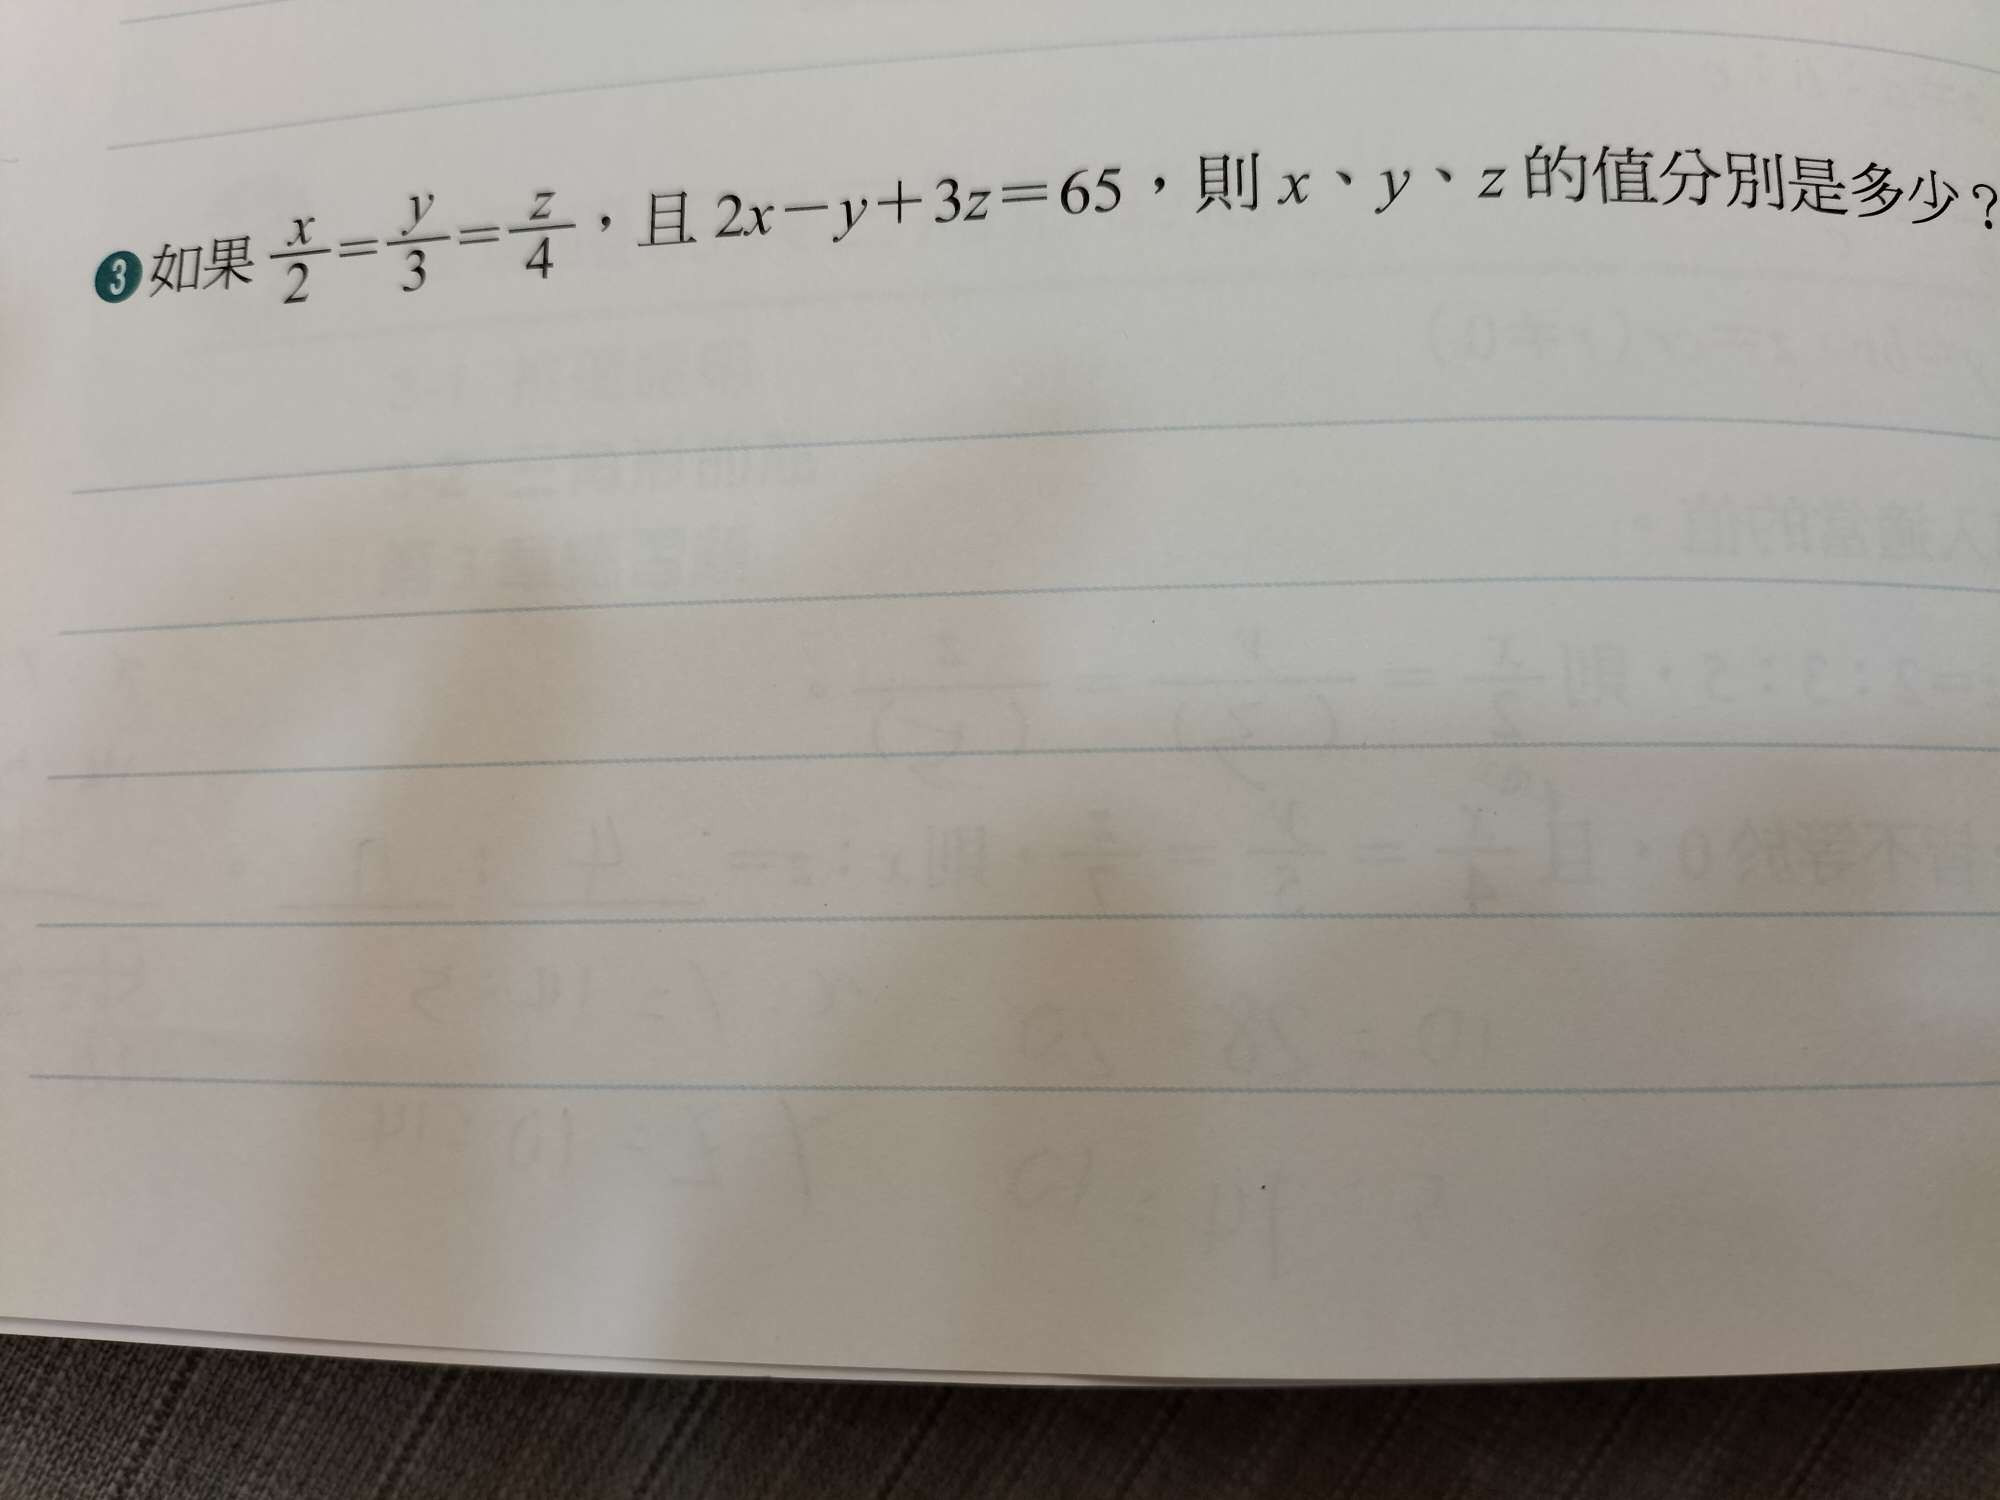 ❸如果 x/2=y/3=z/4，且 2x－y＋3z＝65，則 x、y、z 的值分別是多少？